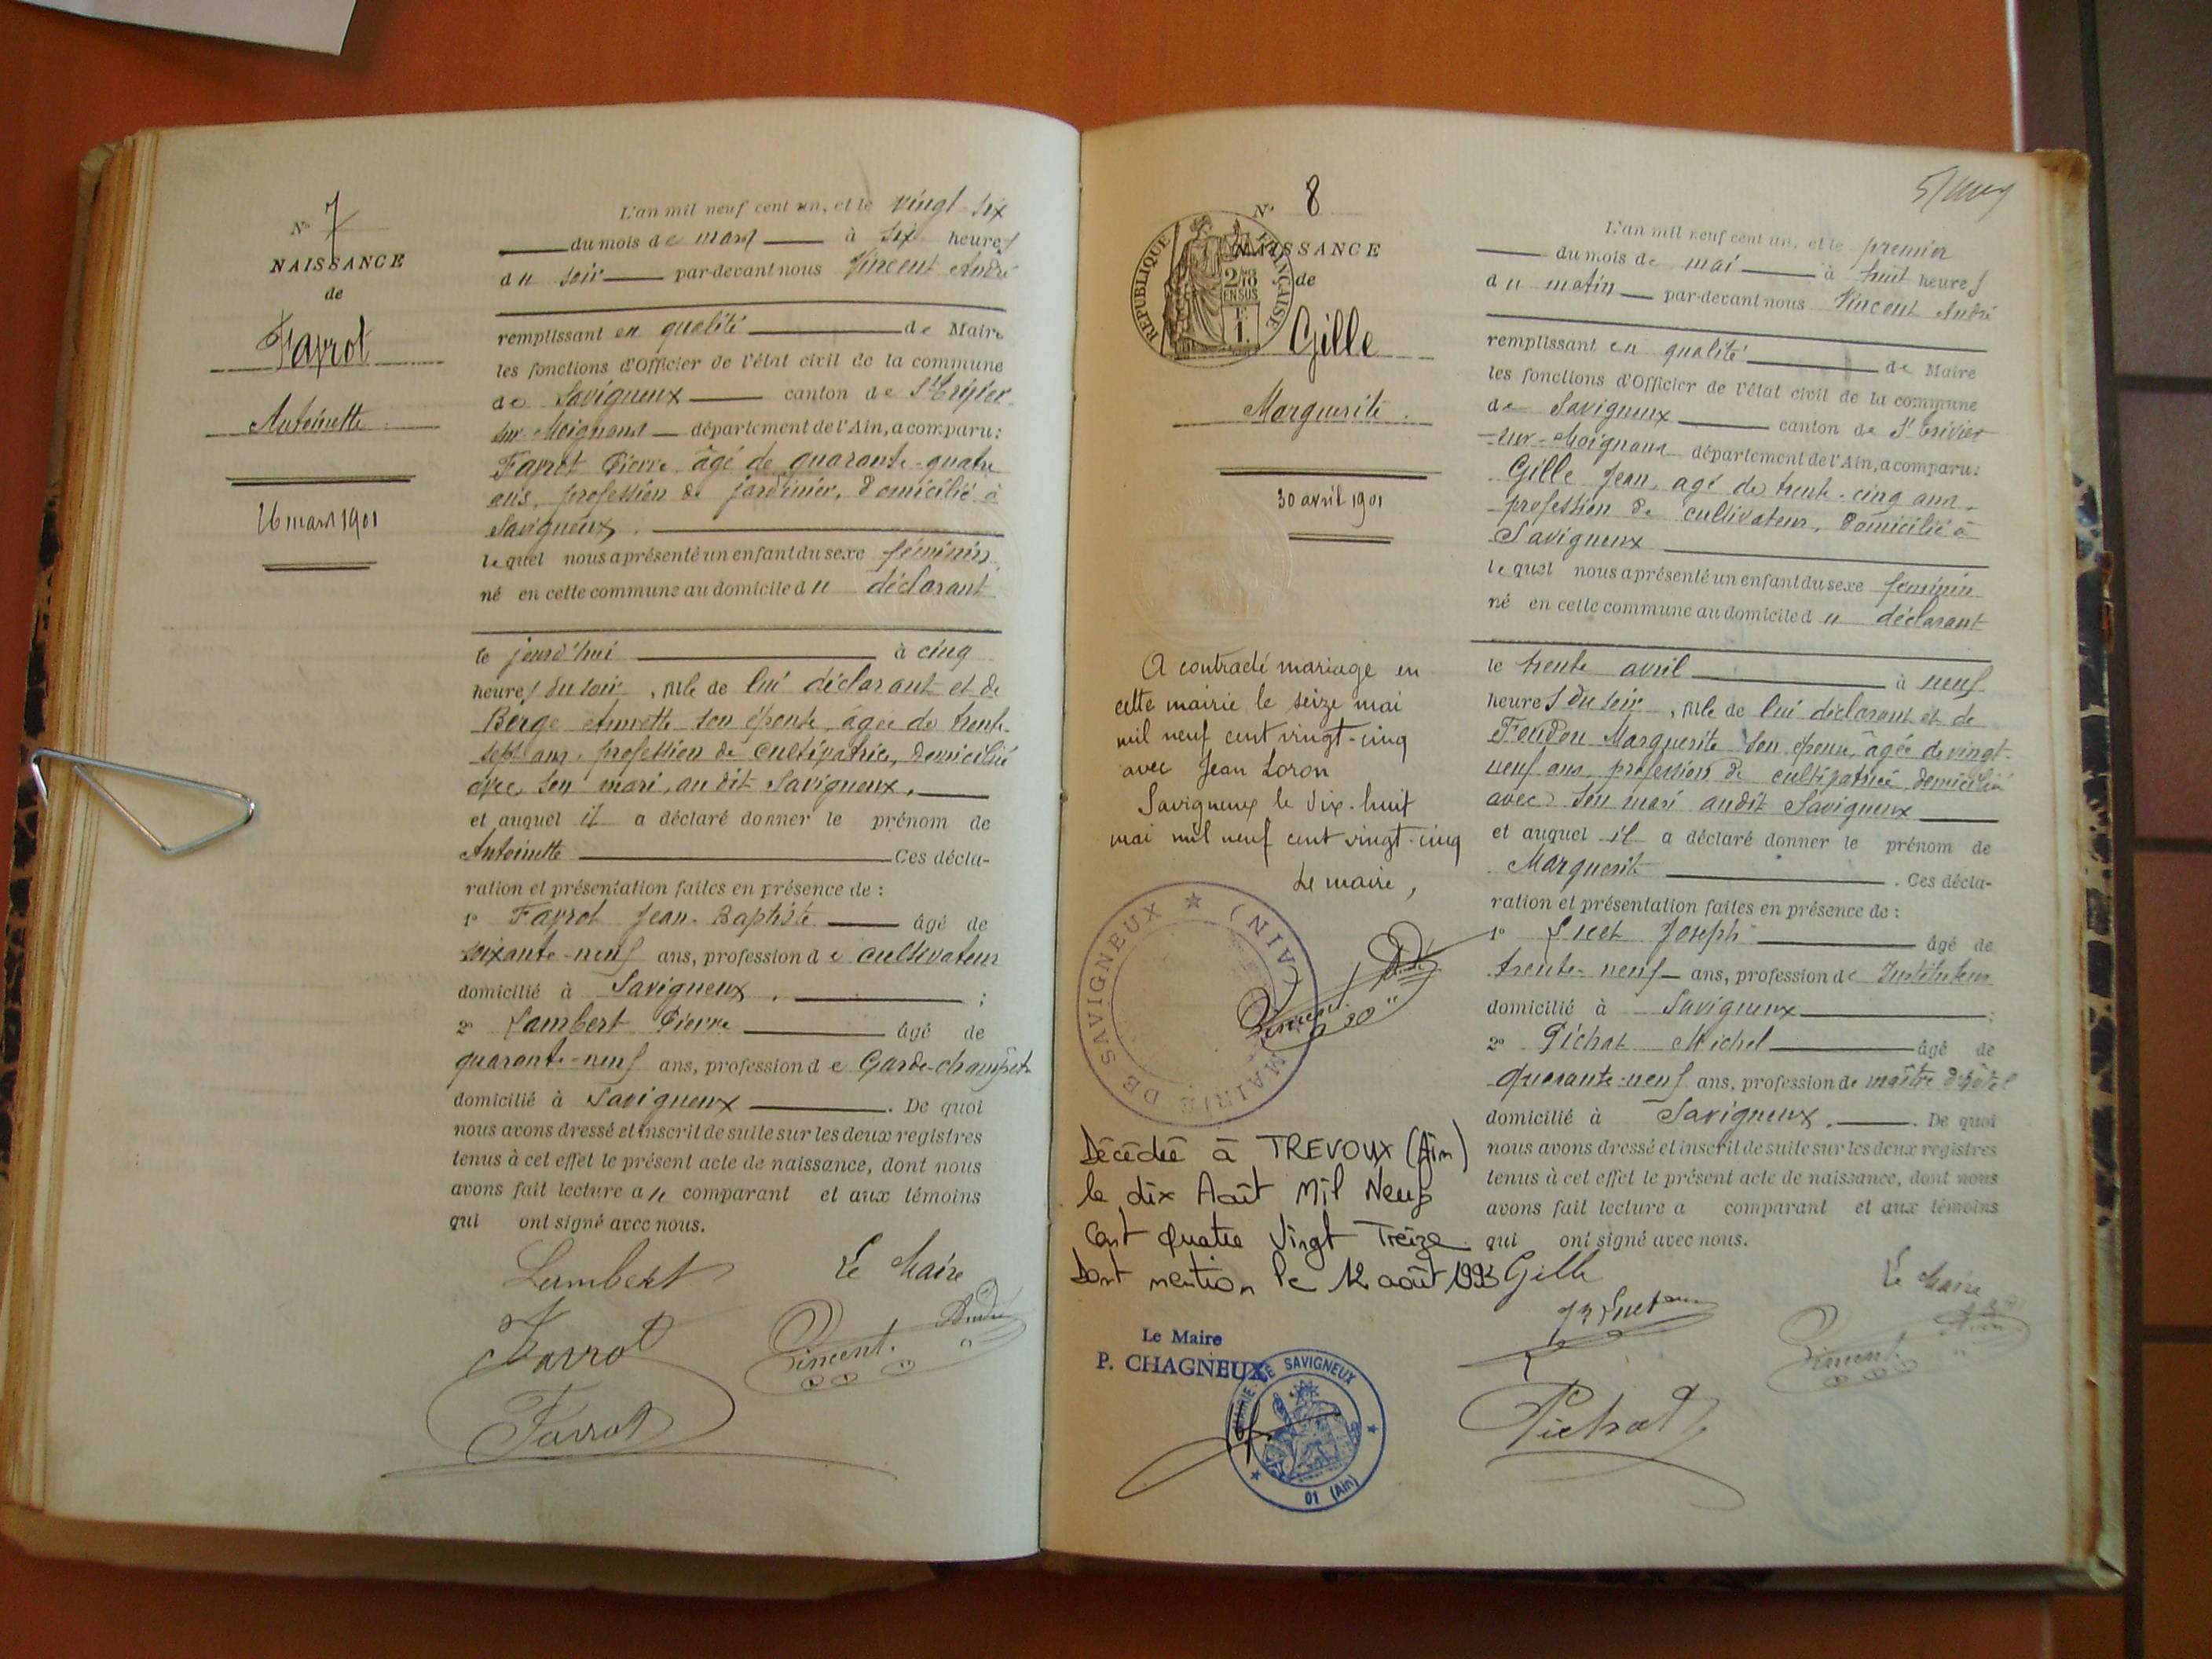 N° 7
NAISSANCE
de
Favrot
Antoinette
26 mars 1901
L'an mil neuf cent un, et le vingt six
du mois de mars à six heures
du soir par-devant nous Vincent André
remplissant en qualité de Maire
les fonctions d'Officier de l'état civil de la commune
de Savigneux canton de St Trivier
sur-Moignans département de l'Ain, a comparu:
Favrot Pierre âgé de quarante-quatre
ans, profession de jardinier, domicilié à
Savigneux.
lequel nous a présenté un enfant du sexe féminin,
né en cette commune au domicile du déclarant
le jourd'hui à cinq
heures du soir, fille de lui déclarant et de
Berge Annette son épouse, âgée de trente-
sept ans, profession de cultivatrice, domiciliée
avec son mari, au dit Savigneux.
et auquel il a déclaré donner le prénom de
Antoinette Ces décla-
ration et présentation faites en présence de :
1° Favrot Jean-Baptiste âgé de
soixante-neuf ans, profession de cultivateur
domicilié à Savigneux. ;
2° Lambert Pierre âgé de
quarante-neuf ans, profession de Garde-champêtre
domicilié à Savigneux. De quoi
nous avons dressé et inscrit de suite sur les deux registres
tenus à cet effet le présent acte de naissance, dont nous
avons fait lecture au comparant et aux témoins
qui ont signé avec nous.
Lambert Le Maire
Favrot Vincent André
Favrot
5/
N° 8
NAISSANCE
de
RÉPUBLIQUE FRANÇAISE
2/10
EN SUS
F.
1.
Gille
Marguerite.
30 avril 1901
A contracté mariage en
cette mairie le seize mai
mil neuf cent vingt-cinq
avec Jean Loron
Savigneux le dix-huit
mai mil neuf cent vingt-cinq
Le maire,
Vincent André
MAIRIE DE SAVIGNEUX (AIN)
Décédée à TREVOUX (Ain)
le dix Août Mil Neuf
Cent Quatre Vingt Treize.
Dont mention le 12 août 1993
Le Maire
P. CHAGNEUX
MAIRIE DE SAVIGNEUX
01 (Ain)
L'an mil neuf cent un, et le premier
du mois de mai à huit heures
du matin par-devant nous Vincent André
remplissant en qualité de Maire
les fonctions d'Officier de l'état civil de la commune
de Savigneux canton de St Trivier
-sur-Moignans département de l'Ain, a comparu:
Gille Jean, âgé de trente-cinq ans,
profession de cultivateur, domicilié à
Savigneux
lequel nous a présenté un enfant du sexe féminin
né en cette commune au domicile du déclarant
le trente avril à neuf
heures du soir, fille de lui déclarant et de
Foudon Marguerite son épouse, âgée de vingt-
neuf ans, profession de cultivatrice, domiciliée
avec son mari audit Savigneux
et auquel il a déclaré donner le prénom de
Marguerite. Ces décla-
ration et présentation faites en présence de :
1° Lucet Joseph âgé de
trente-neuf ans, profession de Instituteur
domicilié à Savigneux ;
2° Pichat Michel âgé de
quarante-neuf ans, profession de maître d'hôtel
domicilié à Savigneux. De quoi
nous avons dressé et inscrit de suite sur les deux registres
tenus à cet effet le présent acte de naissance, dont nous
avons fait lecture a comparant et aux témoins
qui ont signé avec nous.
Gille Le Maire
Vincent André
Pichat